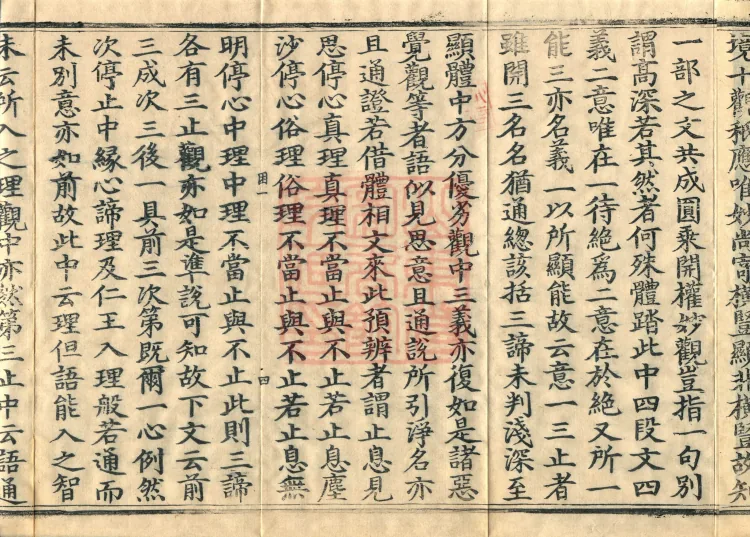 境十觀種應唯妙尚高橫豎顯非橫豎故知
一部之文共成圓乘開權妙觀豈指一句別
謂高深若其然者何殊體踏此中四段文四
義二意唯在一待絶爲二意在於絶又所一
能三亦名義一以所顯能故云意一三止者
雖開三名名猶通總該括三諦未判淺深至
顯體中方分優劣觀中三義亦復如是諸惡
覺觀等者語似見思意且通說所引淨名亦
且通證若借體相文來此預辨者謂止息見
思停心真理真理不當止與不止若止息塵
沙停心俗理俗理不當止與不止若止息無
田一
四
明停心中理中理不當止與不止此則三諦
各有三止觀亦如是準說可知故下文云前
三成次三後一具前三次第既爾一心例然
次停止中緣心諦理及仁王入理般若通而
未別意亦如前故此中云理但語能入之智
未云所入之理觀中亦然第三止中云語通